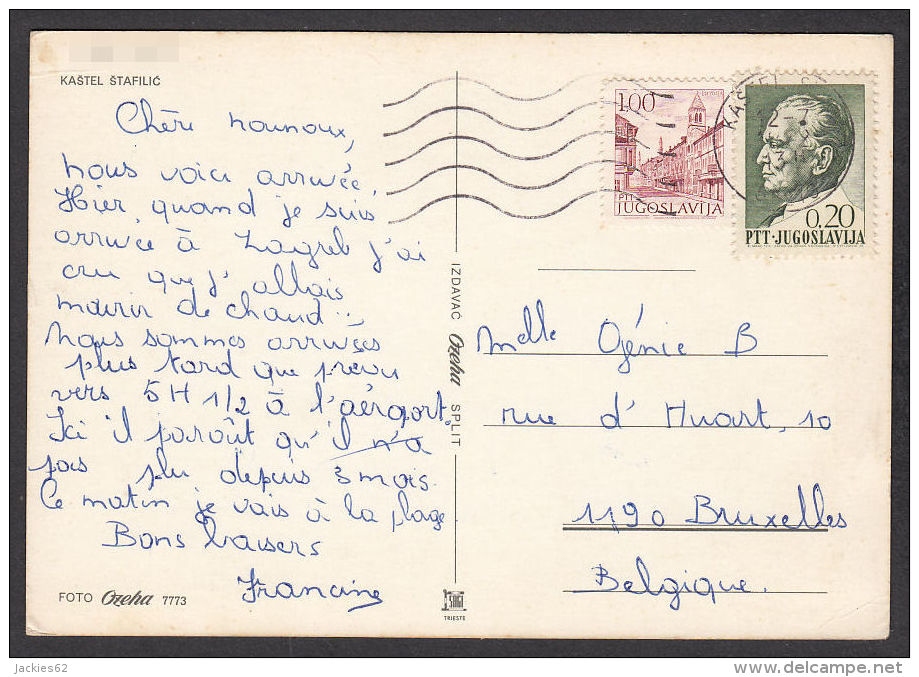 KAŠTEL ŠTAFILIĆ
Chère nounoux,
nous voici arrivée.
Hier, quand je suis
arrivée à Zagreb j'ai
cru que j'allais
mourir de chaud...
Nous sommes arrivées
plus tard que prévu
vers 5H 1/2 à l'aéroport.
Ici il paraît qu'il n'a
pas plu depuis 3 mois.
Ce matin je vais à la plage.
Bons baisers
Francine
FOTO Ozeha 7773
IZDAVAČ Ozeha SPLIT
TRIESTE
1.00
PTT
JUGOSLAVIJA
KAŠTEL
0.20
PTT·JUGOSLAVIJA
Melle Ogénie B
rue d'Huart, 10
1190 Bruxelles
Belgique.
jackies62
delcampe.net